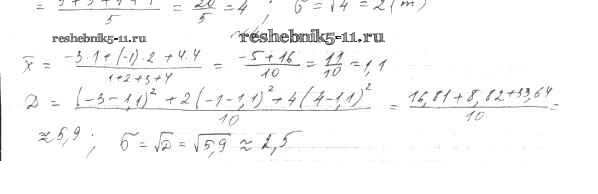 5 = 20/5 = 4 ; б = √4 = 2 (m)
reshebnik5-11.ru reshebnik5-11.ru
x̄ = (-3·1+(-1)·2+4·4)/(1+2+3+4) = (-5+16)/10 = 11/10 = 1,1
D = ((-3-1,1)²+2(-1-1,1)²+4(4-1,1)²)/10 = (16,81+8,82+33,64)/10 =
≈5,9 ; б = √D = √5,9 ≈ 2,5